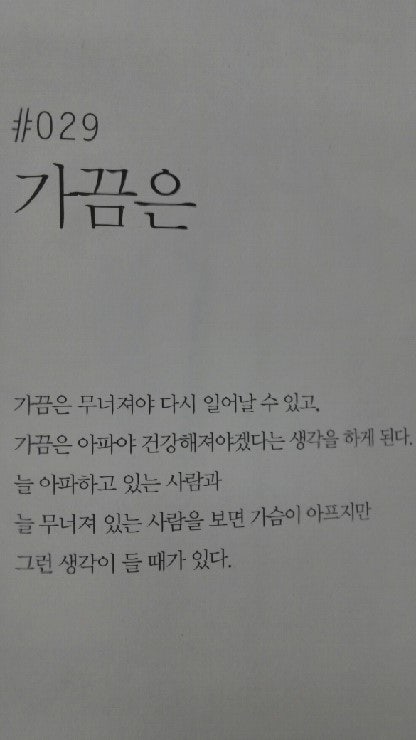 #029
가끔은
가끔은 무너져야 다시 일어날 수 있고,
가끔은 아파야 건강해져야겠다는 생각을 하게 된다.
늘 아파하고 있는 사람과
늘 무너져 있는 사람을 보면 가슴이 아프지만
그런 생각이 들 때가 있다.